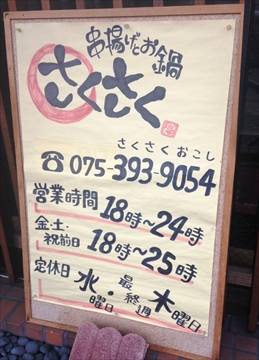 串揚げとお鍋
さくさく
さくさくおこし
☎075-393-9054
営業時間 18時～24時
金・土・祝前日 18時～25時
定休日 水曜日・最終週木曜日